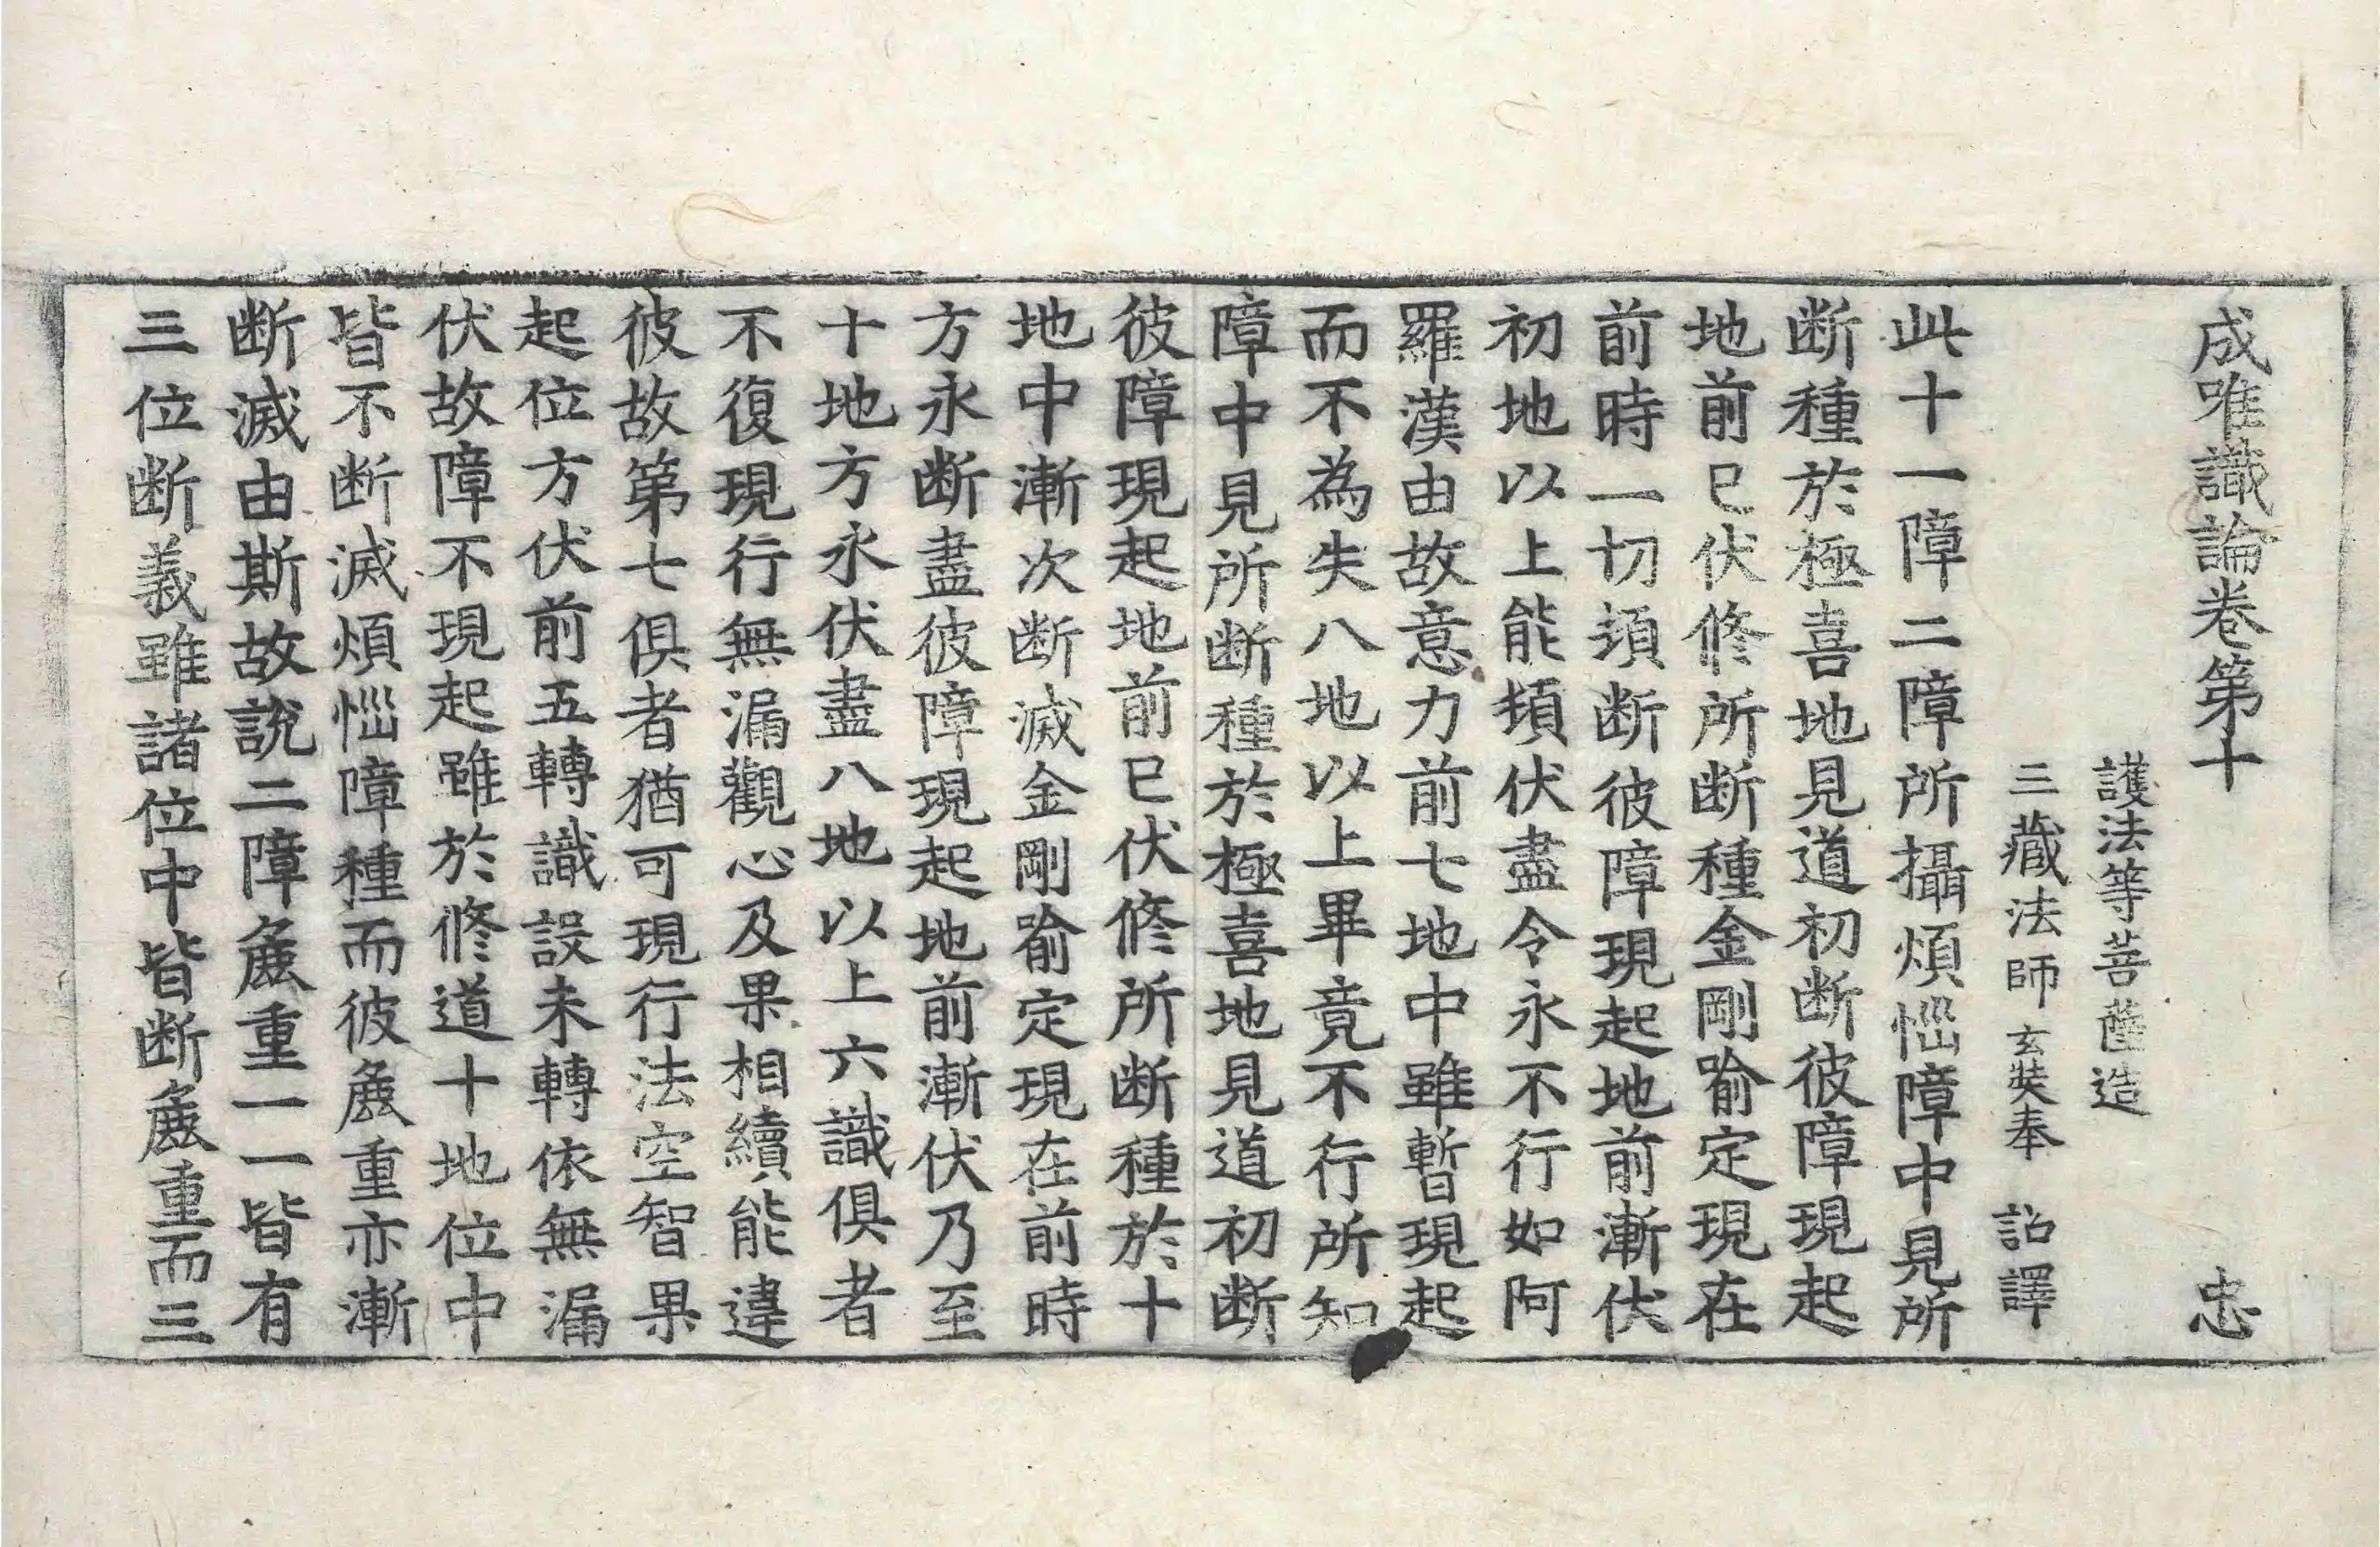 成唯識論卷第十 忠
護法等菩薩造
三藏法師玄奘奉 詔譯
此十一障二障所攝煩惱障中見所
断種於極喜地見道初断彼障現起
地前已伏修所断種金剛喻定現在
前時一切頓断彼障現起地前漸伏
初地以上能頓伏盡令永不行如阿
羅漢由故意力前七地中雖暫現起
而不為失八地以上畢竟不行所知
障中見所断種於極喜地見道初断
彼障現起地前已伏修所断種於十
地中漸次断滅金剛喻定現在前時
方永断盡彼障現起地前漸伏乃至
十地方永伏盡八地以上六識俱者
不復現行無漏觀心及果相續能違
彼故第七俱者猶可現行法空智果
起位方伏前五轉識設未轉依無漏
伏故障不現起雖於修道十地位中
皆不断滅煩惱障種而彼麁重亦漸
断滅由斯故説二障麁重一一皆有
三位断義雖諸位中皆断麁重而三